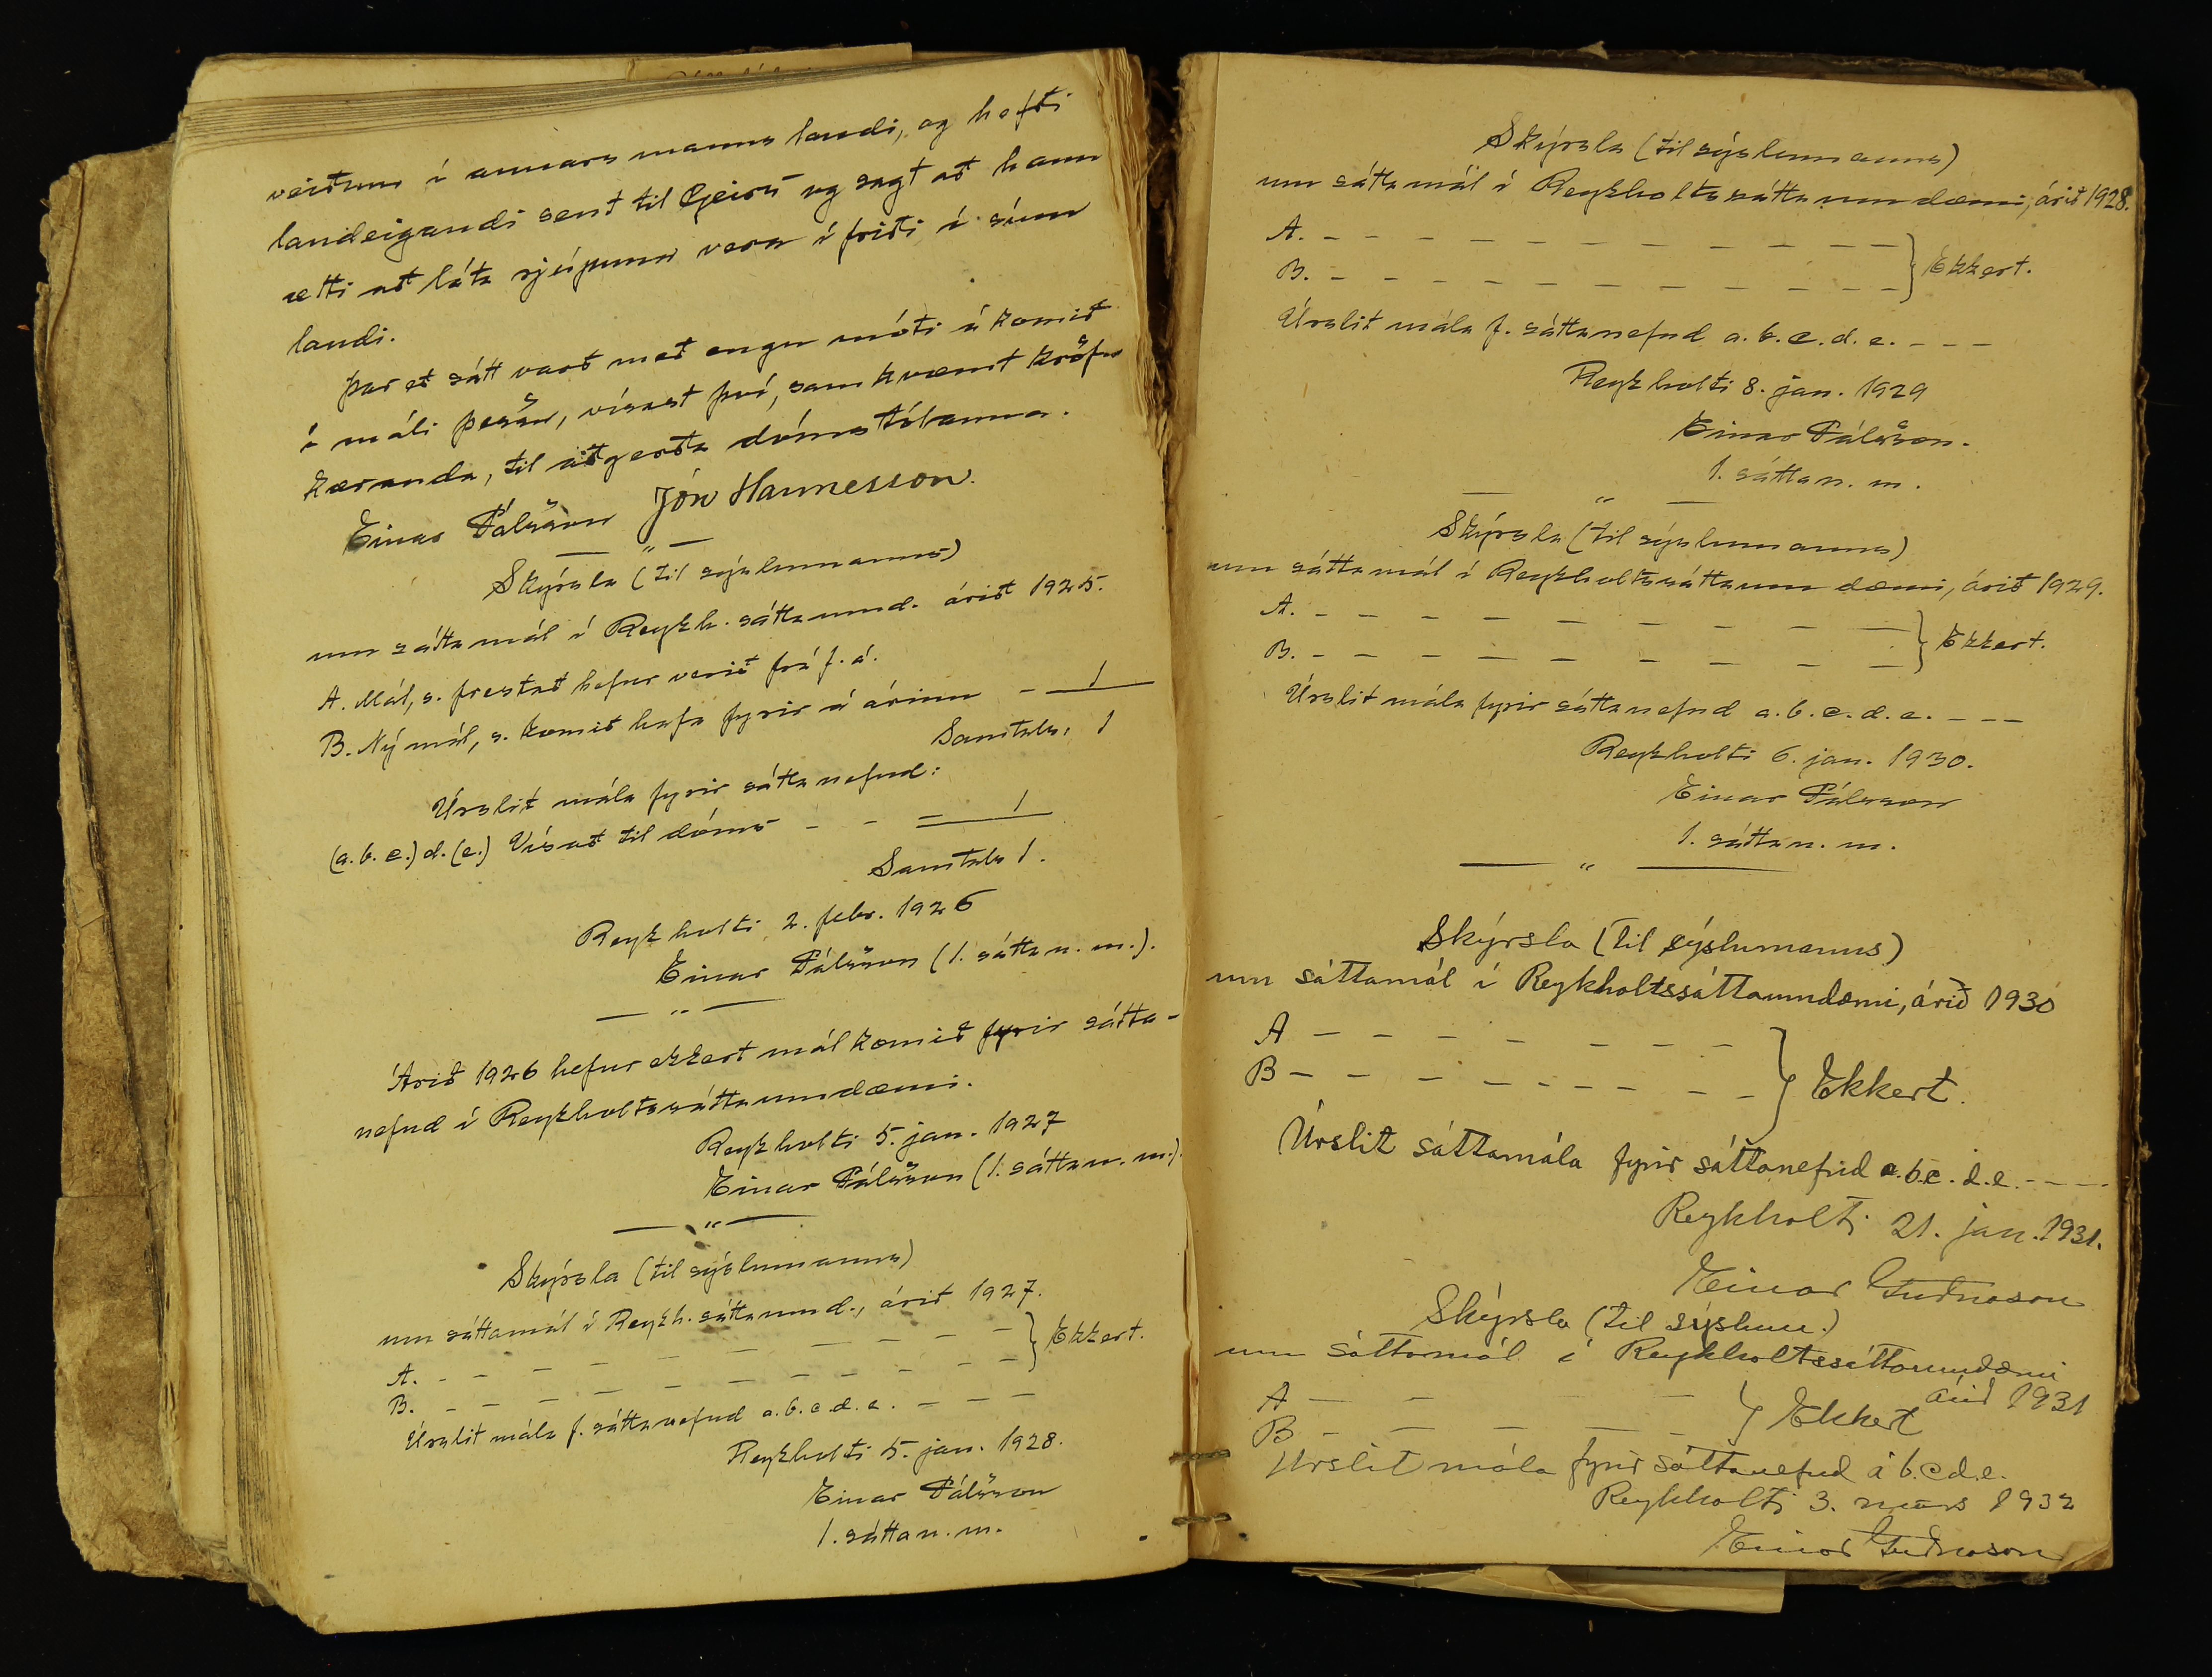 veiðum í annars manns landi, og hafði
landeigandi sent til Geirs og sagt að hann
ætti að láta rjúpuna vera í friði í sínu
landi.
Þar eð sátt varð með engu móti á komið
í máli þessu, vísast því, samkvæmt kröfu
kæranda, til aðgerða dómstólanna.
Einar Pálsson Jón Hannesson.
— " —
Skýrsla (til sýslumanns)
um sáttamál í Reykh. sáttaumd. árið 1925.
A. Mál, s. frestað hefur verið frá f. á.
B. Ný mál, s. komið hafa fyrir á árinu - 1
Samtals: 1
Úrslit mála fyrir sáttanefnd:
(a. b. c.) d. (e.) Vísað til dóms - - = 1
Samtals 1.
Reykholti 2. febr. 1926
Einar Pálsson (1. sáttan. m.).
— " —
Árið 1926 hefur ekkert mál komið fyrir sátta-
nefnd í Reykholtssáttaumdæmi.
Reykholti 5. jan. 1927
Einar Pálsson (1. sáttan. m.).
— " —
Skýrsla (til sýslumanns)
um sáttamál í Reykh. sáttaumd., árið 1927.
A. - - - - - - - - - } Ekkert.
B. - - - - - - - - -
Úrslit mála f. sáttanefnd a. b. c. d. e. - - -
Reykholti 5. jan. 1928.
Einar Pálsson
1. sáttan. m.
Skýrsla (til sýslumanns)
um sáttamál í Reykholtssáttaumdæmi, árið 1928.
A. - - - - - - - - - - - -
B. - - - - - - - - - - - - } Ekkert.
Úrslit mála f. sáttanefnd a. b. c. d. e. - - -
Reykholti 8. jan. 1929
Einar Pálsson.
1. sáttan. m.
— " —
Skýrsla (til sýslumanns)
um sáttamál í Reykholtssáttaumdæmi, árið 1929.
A. - - - - - - - - - - -
B. - - - - - - - - - - - } Ekkert.
Úrslit mála fyrir sáttanefnd a. b. c. d. e. - - -
Reykholti 6. jan. 1930.
Einar Pálsson
1. sáttan. m.
— " —
Skýrsla (til sýslumanns)
um sáttamál í Reykholtssáttaumdæmi, árið 1930
A - - - - - - - -
B - - - - - - - - - } Ekkert.
Úrslit sáttamála fyrir sáttanefnd a. b. c. d. e. - - - -
Reykholti 21. jan. 1931.
Einar Guðnason
Skýrsla (til sýslum.)
um sáttamál í Reykholtssáttaumdæmi
árið 1931
A - - - -
B - - - - - } Ekkert
Úrslit mála fyrir sáttanefnd a b. c d. e.
Reykholti 3. mars 1932
Einar Guðnason